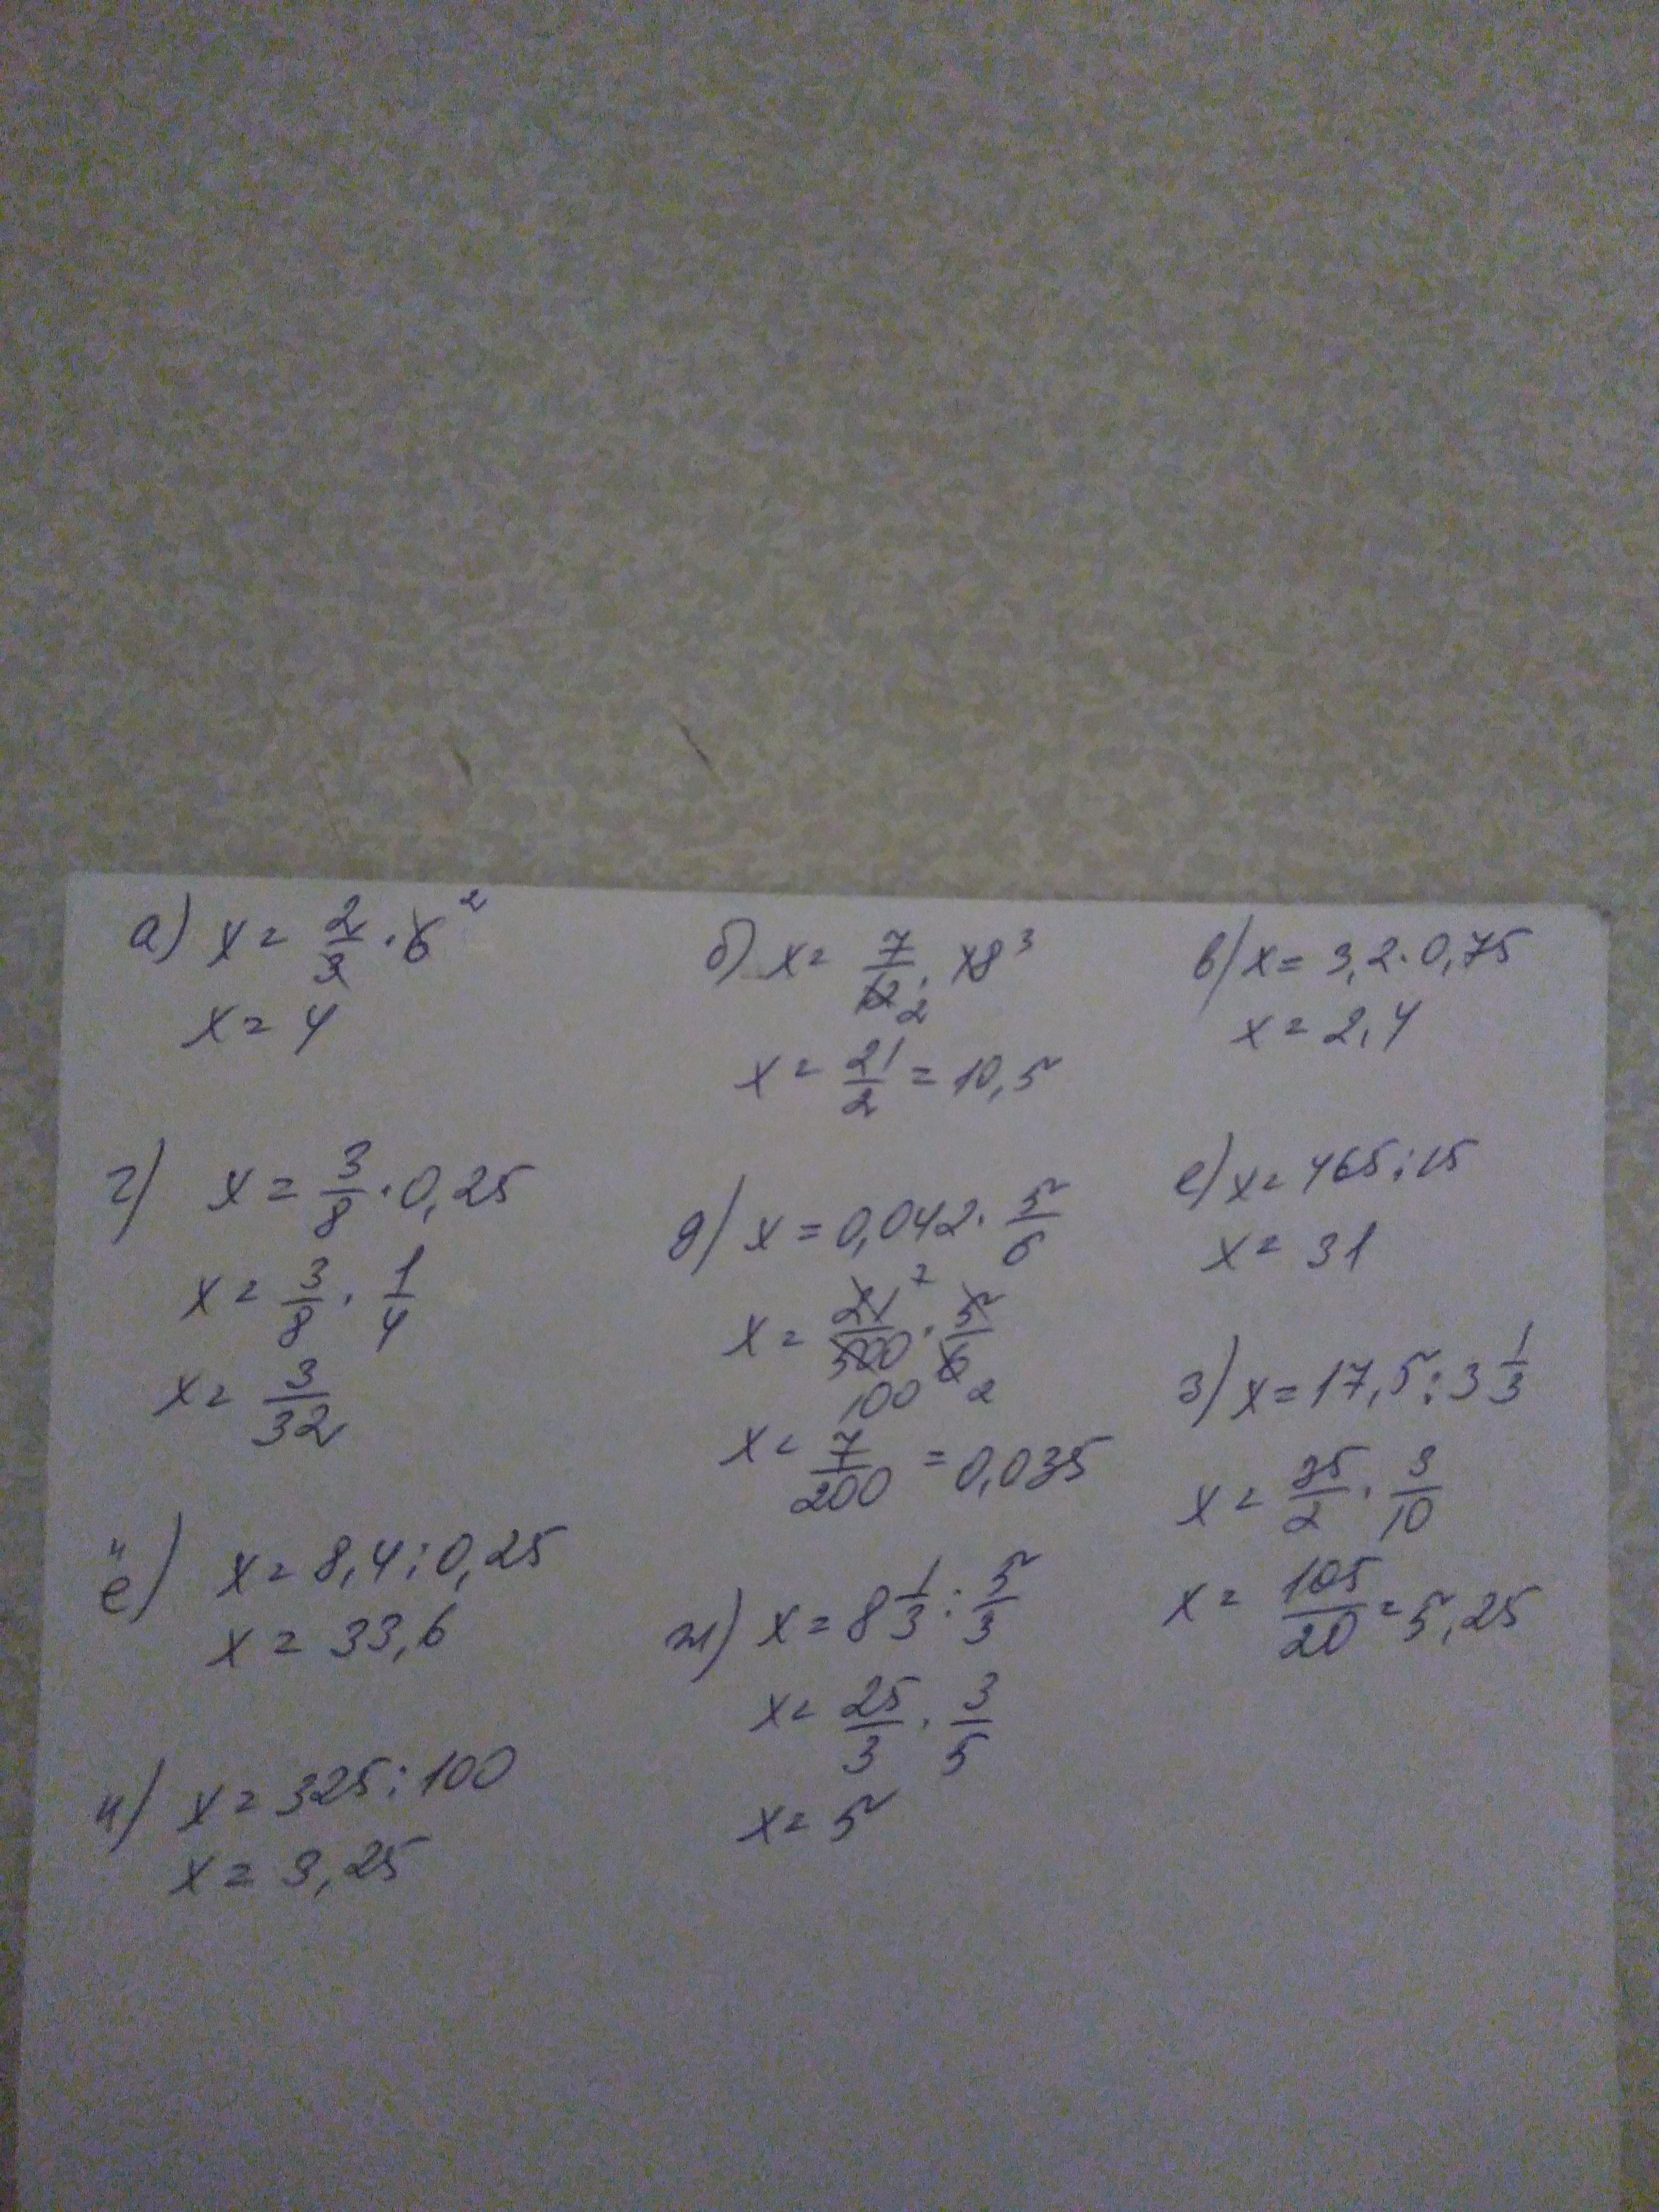 а) x = 2/3 · 6 ²
x = 4
б) x = 7/12 2 · 18 ³
x = 21/2 = 10,5
в) x = 3,2 · 0,75
x = 2,4
г) x = 3/8 · 0,25
x = 3/8 · 1/4
x = 3/32
д) x = 0,042 · 5/6
x = 21 7/500 100 · 5/6 2
x = 7/200 = 0,035
е) x = 465 : 15
x = 31
ё) x = 8,4 : 0,25
x = 33,6
ж) x = 8 1/3 : 5/3
x = 25/3 · 3/5
x = 5
з) x = 17,5 : 3 1/3
x = 35/2 · 3/10
x = 105/20 = 5,25
и) x = 325 : 100
x = 3,25